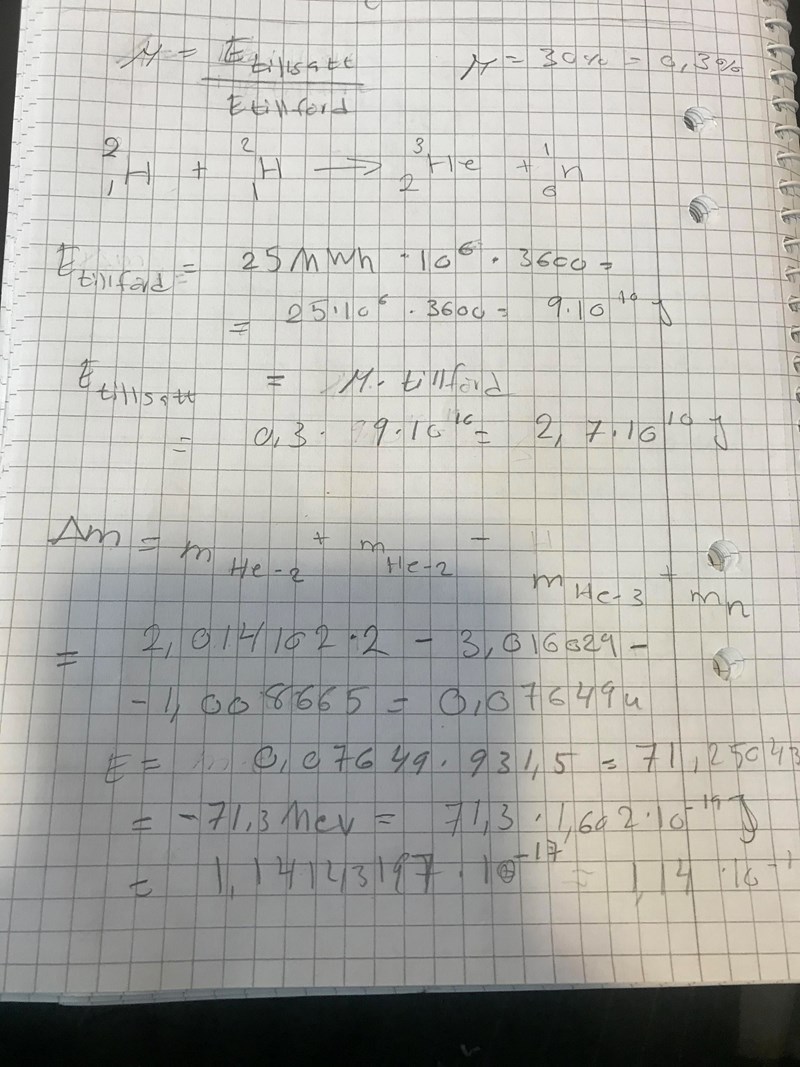 η = E tillsatt / E tillförd    η = 30% = 0,3%
²₁H + ²₁H → ³₂He + ¹₀n
E tillförd = 25 MWh · 10⁶ · 3600 =
= 25·10⁶ · 3600 = 9·10¹⁰ J
E tillsatt = η · tillförd
= 0,3 · 9·10¹⁰ = 2,7·10¹⁰ J
Δm = m He-2 + m He-2 − m He-3 + mn
= 2,014102·2 − 3,016029 −
− 1,008665 = 0,07649u
E = 0,07649 · 931,5 = 71,25043
= −71,3 MeV = 71,3 · 1,602·10⁻¹⁹ J
= 1,14143197 · 10⁻¹⁷ = 1,14 · 10⁻¹